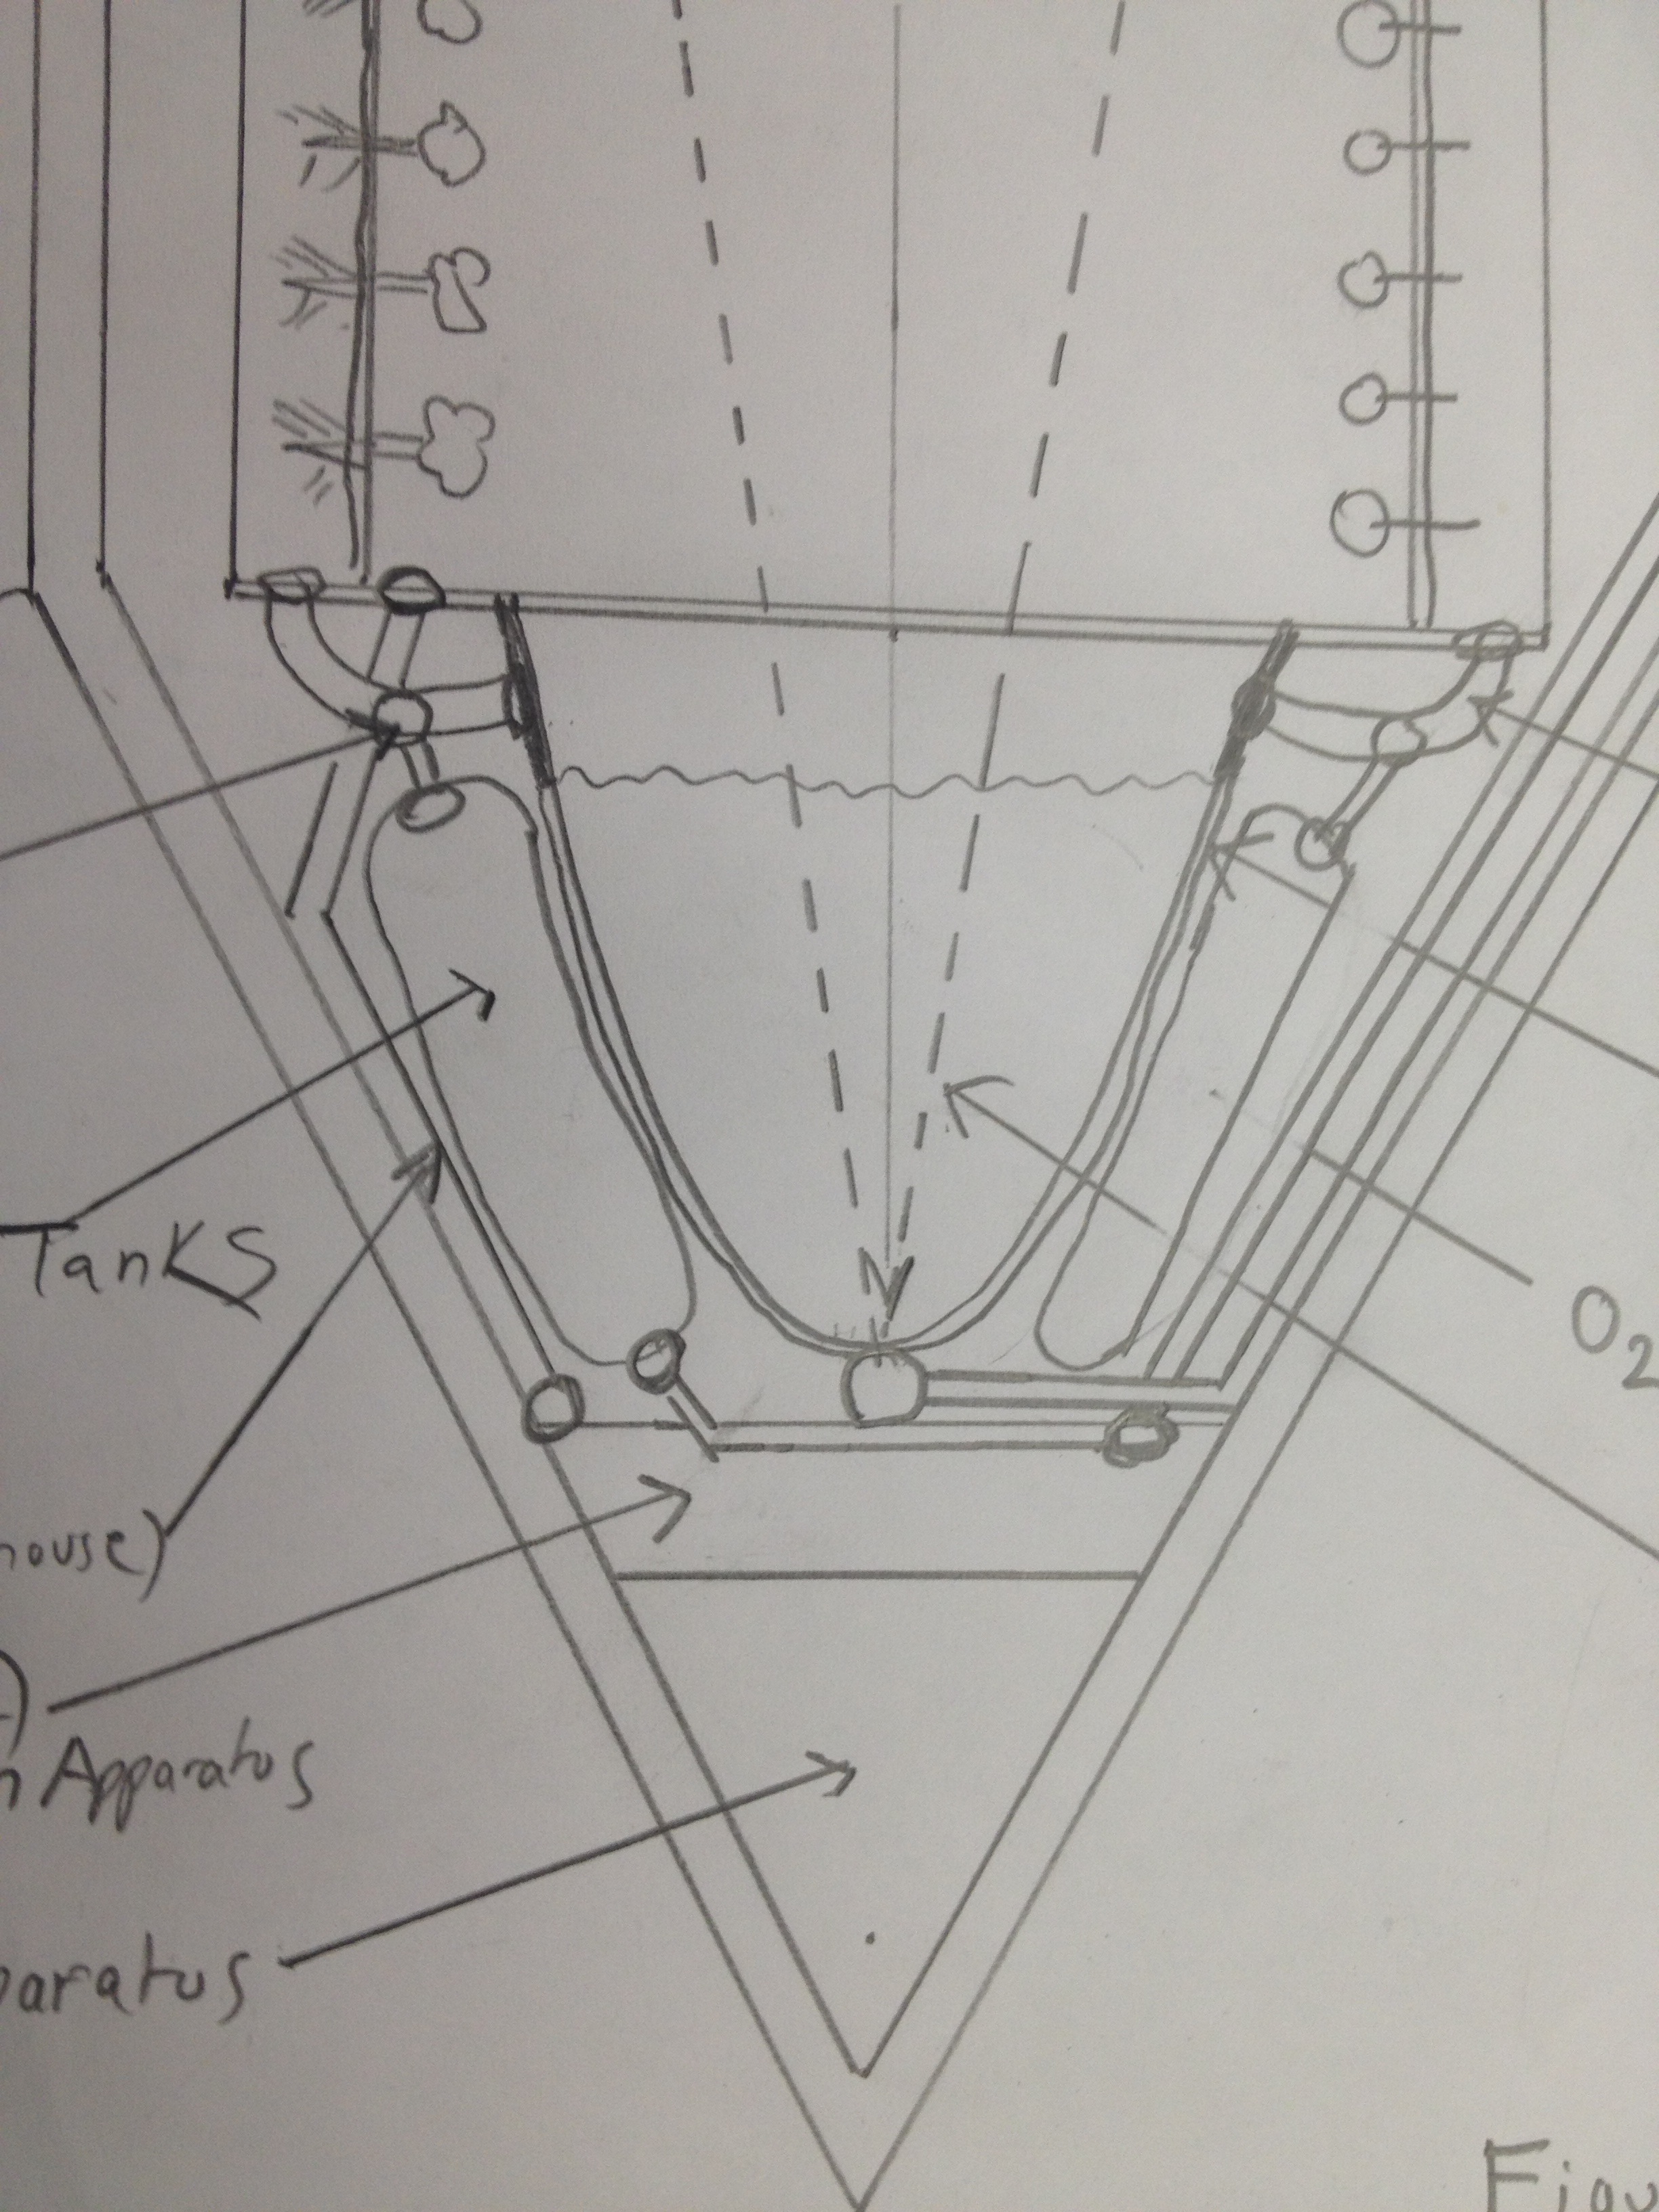 Tanks
O2
house)
)
n Apparatus
paratus
Figu